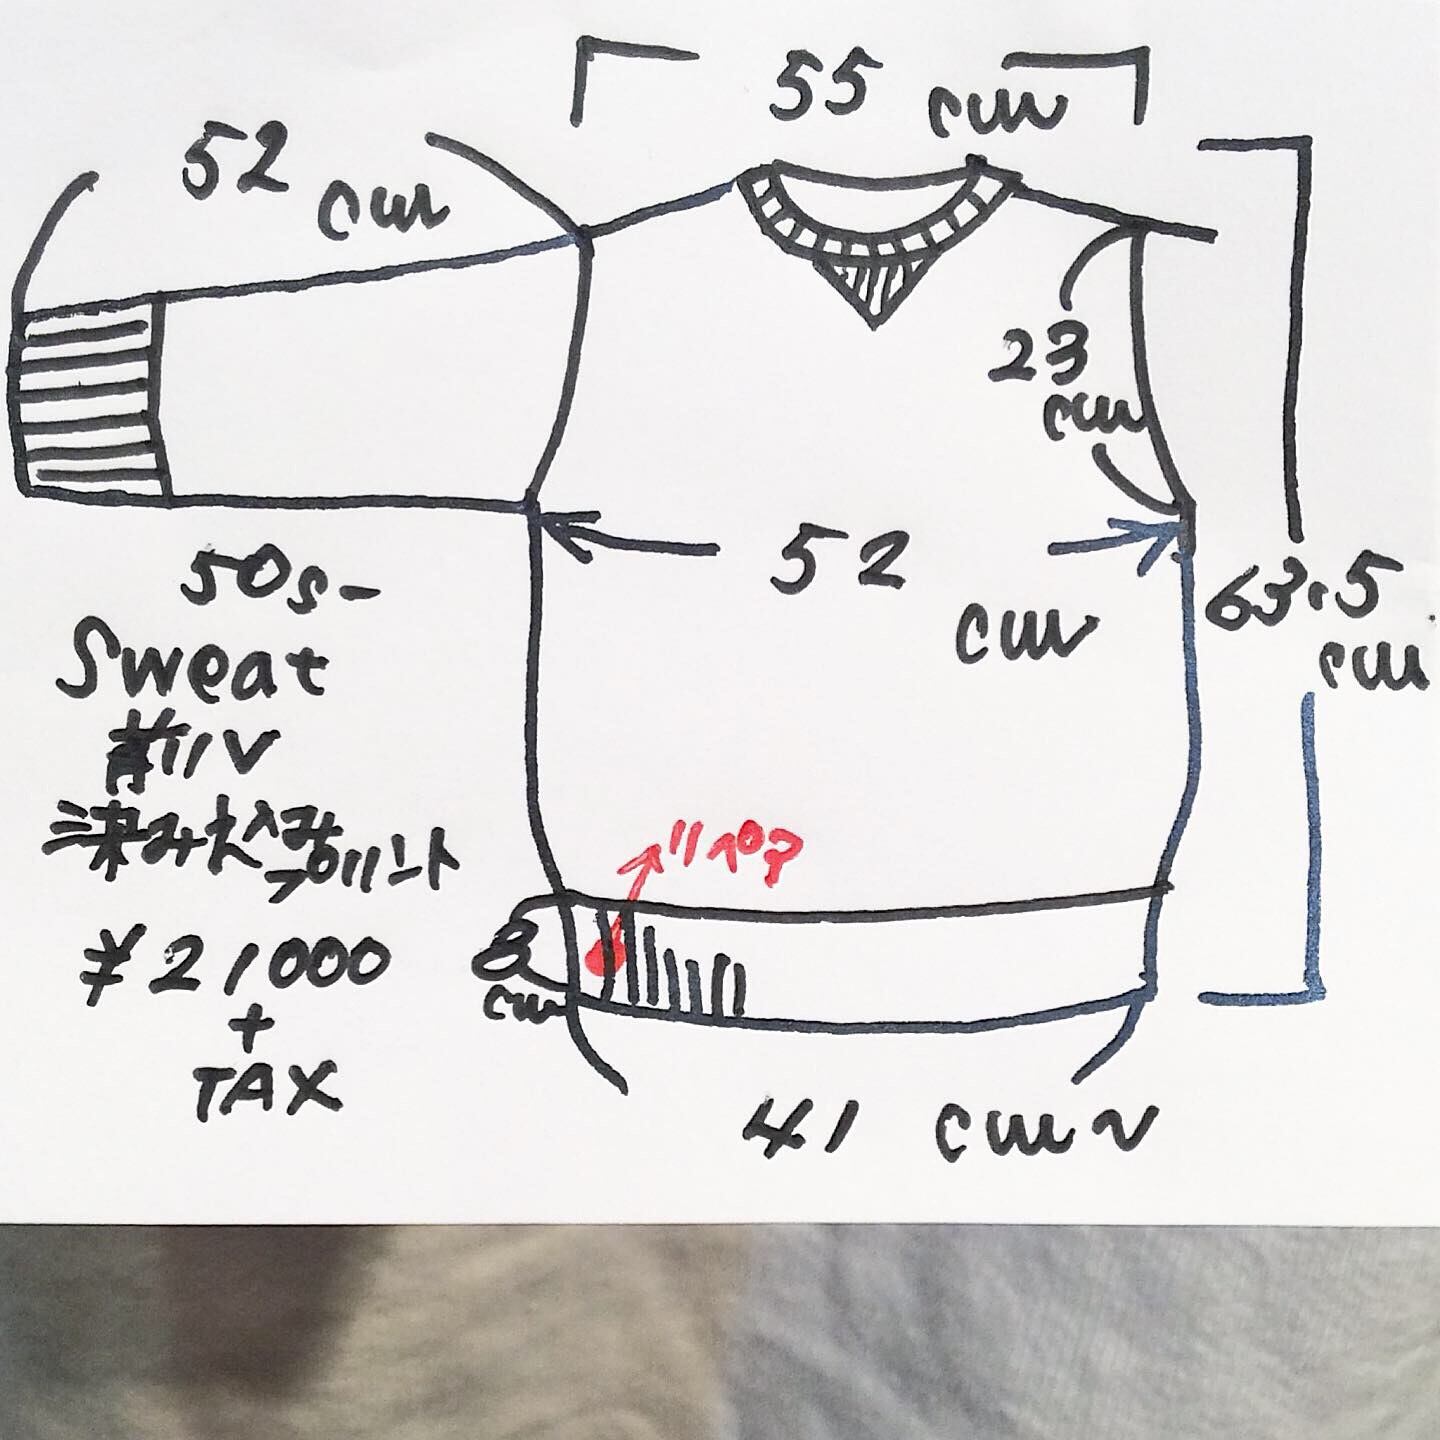 55 cm
52 cm
23 cm
52 cm
63.5 cm
50s-
Sweat
前リV
染み込みプリント
¥21000
+
TAX
リペア
8 cm
41 cm~